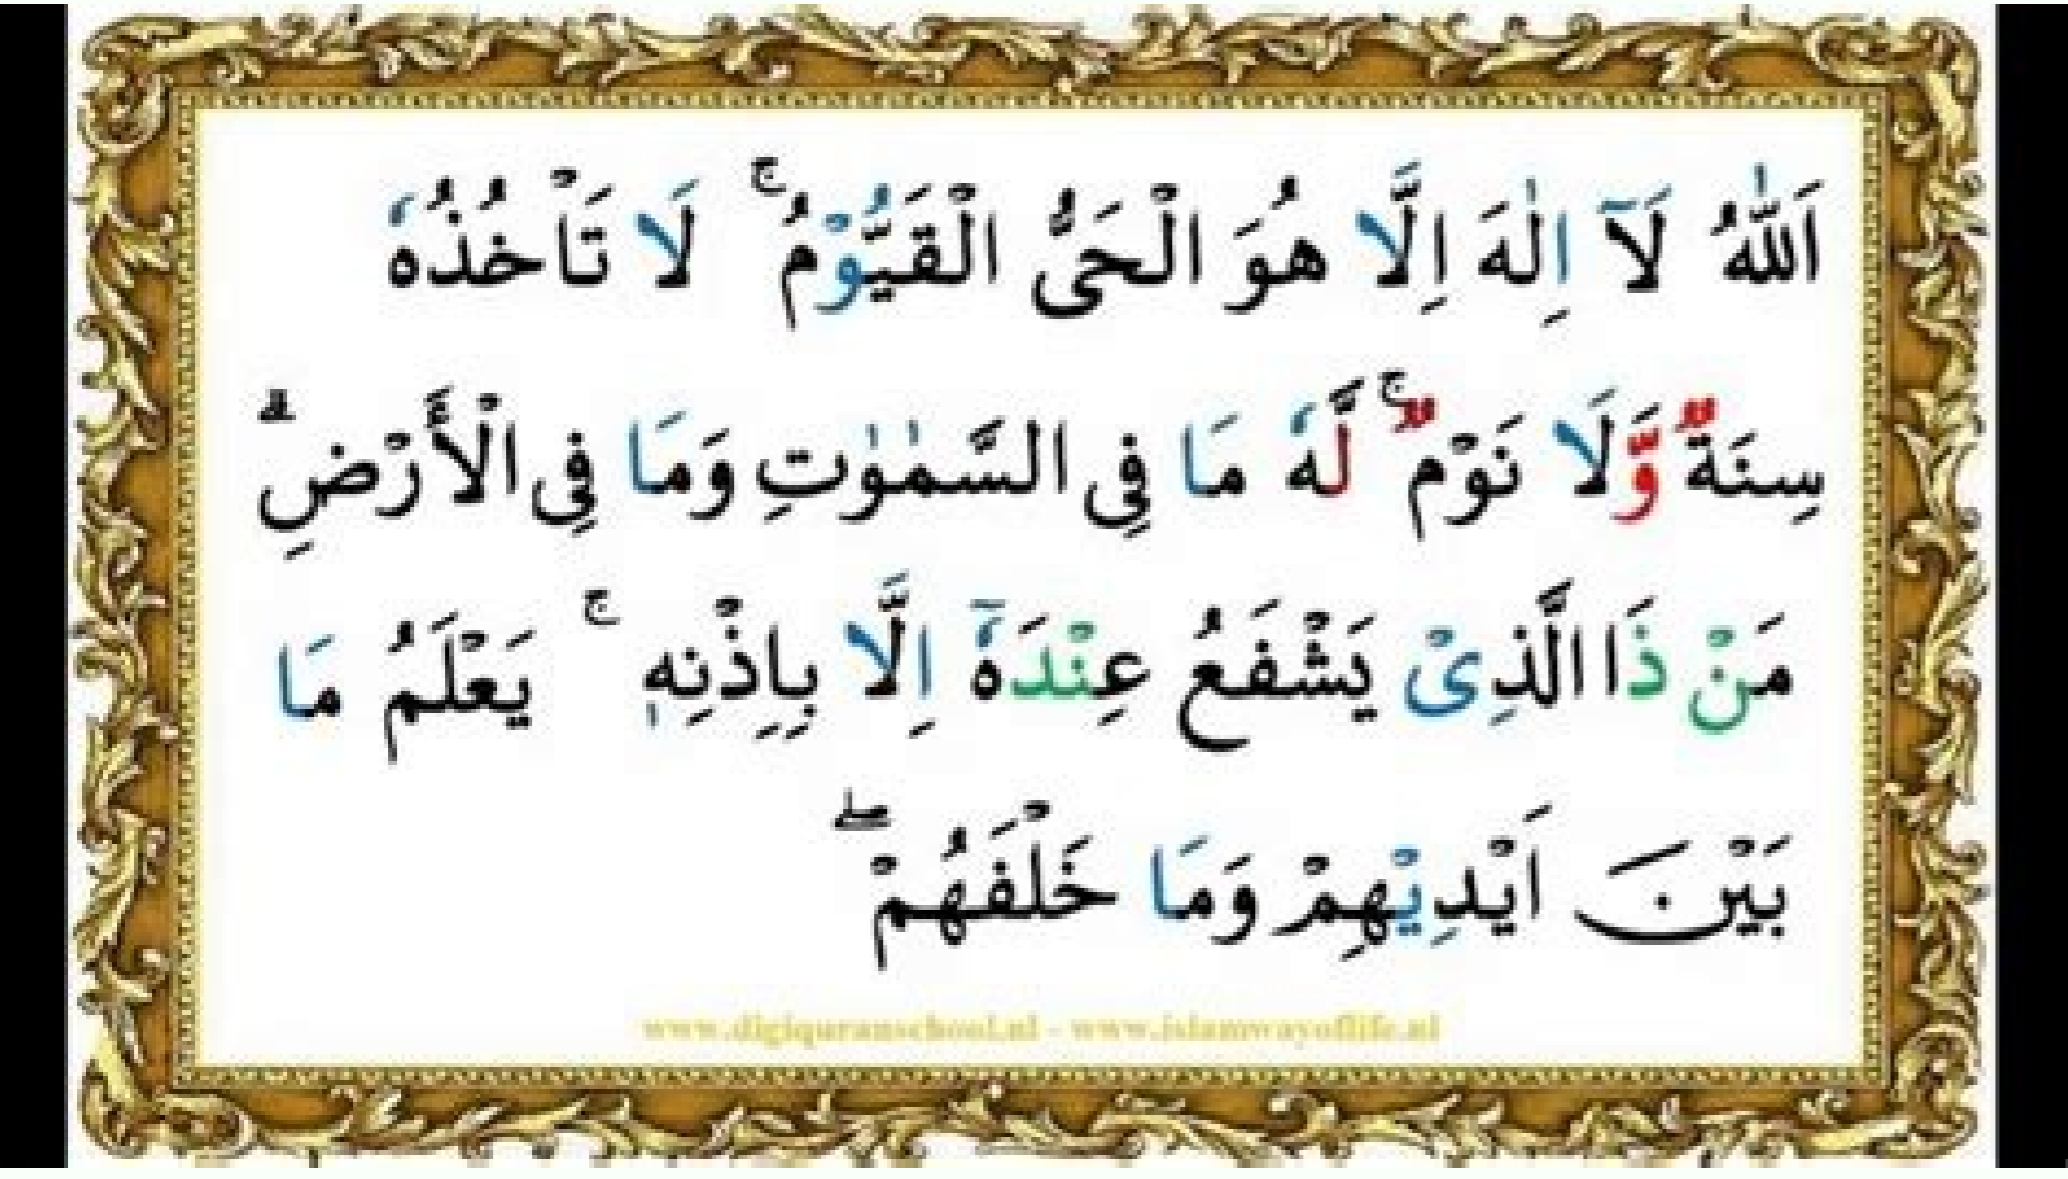 اَللّٰهُ لَآ اِلٰهَ اِلَّا هُوَ الْحَیُّ الْقَیُّوْمُ ۚ لَا تَاْخُذُهٗ
سِنَةٌ وَّلَا نَوْمٌ ۚ لَّهٗ مَا فِی السَّمٰوٰتِ وَمَا فِی الْاَرْضِ ؕ
مَنْ ذَا الَّذِیْ یَشْفَعُ عِنْدَهٗۤ اِلَّا بِاِذْنِهٖ ۚ یَعْلَمُ مَا
بَیْنَ اَیْدِیْهِمْ وَمَا خَلْفَهُمْ ۖ
www.digiquranschool.nl - www.islamwayoflife.nl